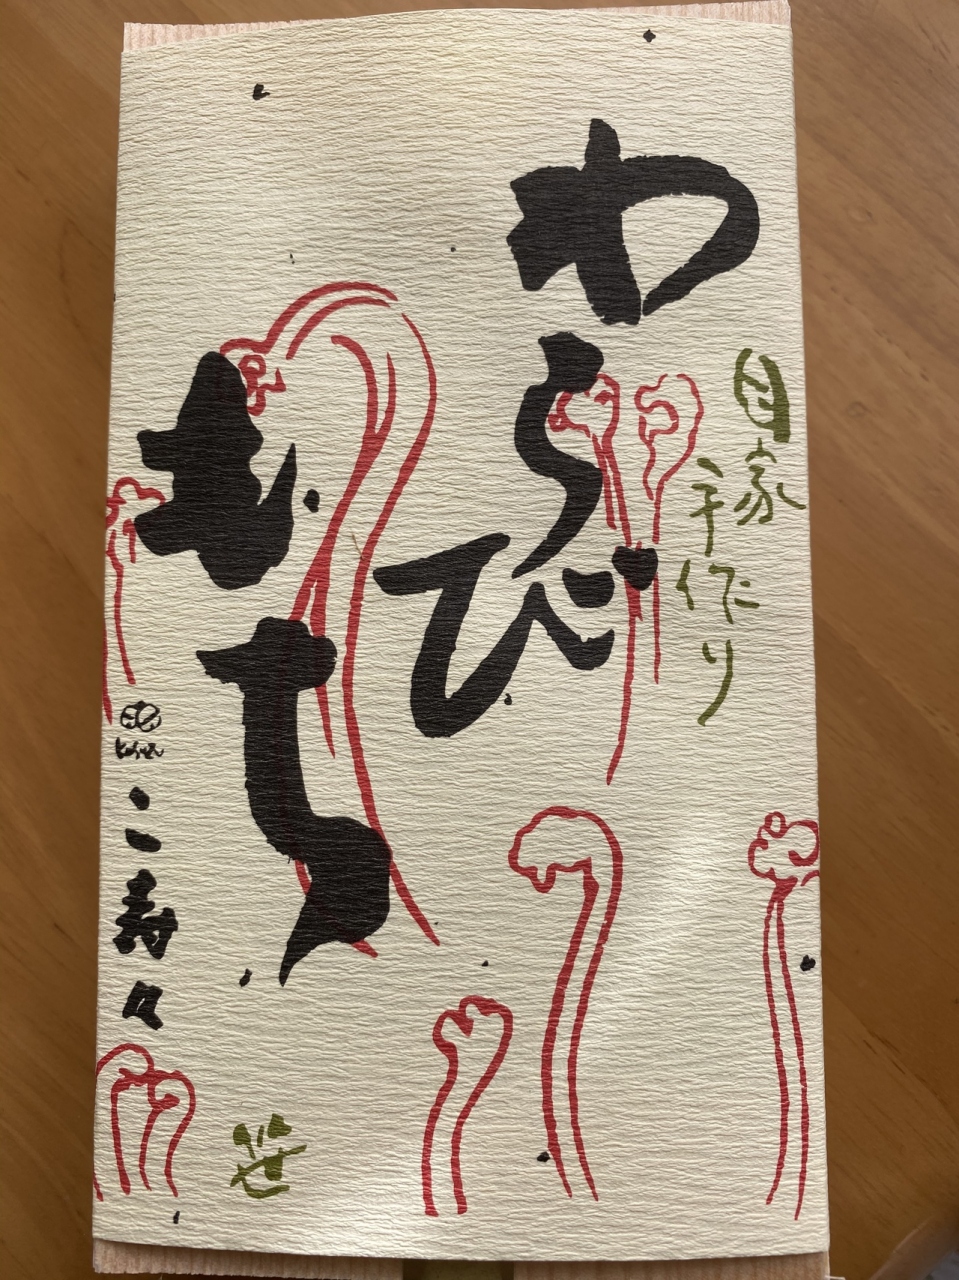 自家
手作り
わらび
もち
笹
こ寿々